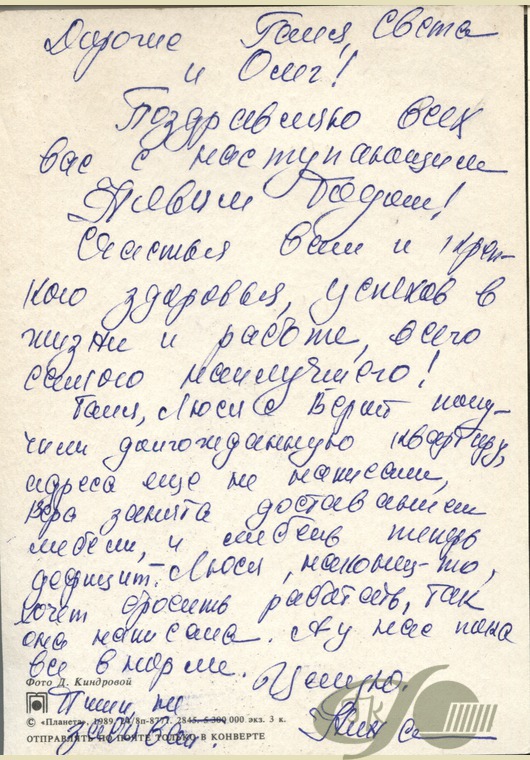 Дорогие Галя, Света
и Олег!
Поздравляю всех
вас с наступающим
Новым Годом!
Счастья вам и креп-
кого здоровья, успехов в
жизни и работе, всего
самого наилучшего!
Галя, Люся с Верой полу-
чили долгожданную квартиру,
адреса еще не написали,
Вера занята доставанием
мебели, и мебель теперь
дефицит. Люся, наконец-то,
хочет бросить работать, так
она написала. А у нас пока
все в норме. Целую.
Фото Д. Киндровой
Пиши, не
© «Планета», 1989. 8п-877. 2845. 5 300 000 экз. 3 к.
забывай.
ОТПРАВЛЯТЬ ПО ПОЧТЕ ТОЛЬКО В КОНВЕРТЕ